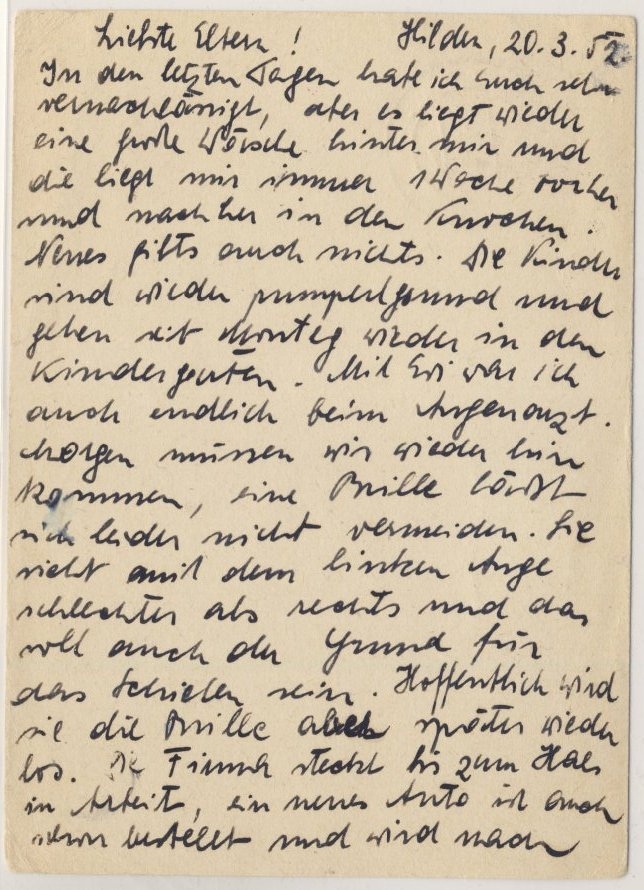 Liebste Eltern! Hilden, 20.3.52
In den letzten Tagen habe ich euch sehr
vernachlässigt, aber es liegt wieder
eine große Wäsche hinter mir und
die liegt mir immer 1 Woche vorher
und nachher in den Knochen.
Neues gibts auch nichts. Die Kinder
sind wieder pumperlgsund und
gehen seit Montag wieder in den
Kindergarten. Mit Evi war ich
auch endlich beim Augenarzt.
Morgen müssen wir wieder hin
kommen, eine Brille läßt
sich leider nicht vermeiden. Sie
sieht mit dem linken Auge
schlechter als rechts und das
soll auch der Grund für
das Schielen sein. Hoffentlich wird
sie die Brille aber später wieder
los. Die Firma steckt bis zum Hals
in Arbeit, ein neues Auto ist auch
schon bestellt und wird nach